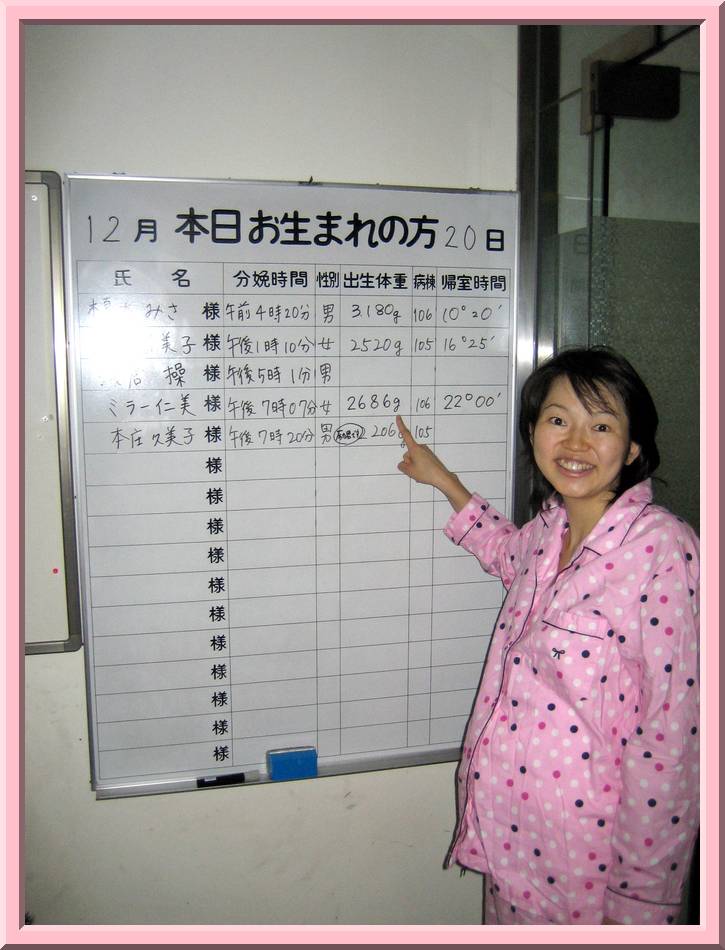 12月 本日お生まれの方 20日
氏 名 分娩時間 性別 出生体重 病棟 帰室時間
みさ 様 午前4時20分 男 3.180g 106 10°20′
美子 様 午後1時10分 女 2520g 105 16°25′
操 様 午後5時1分 男
ミラー仁美 様 午後7時07分 女 2686g 106 22°00′
本庄久美子 様 午後7時20分 男 206 105
様
様
様
様
様
様
様
様
様
様
様